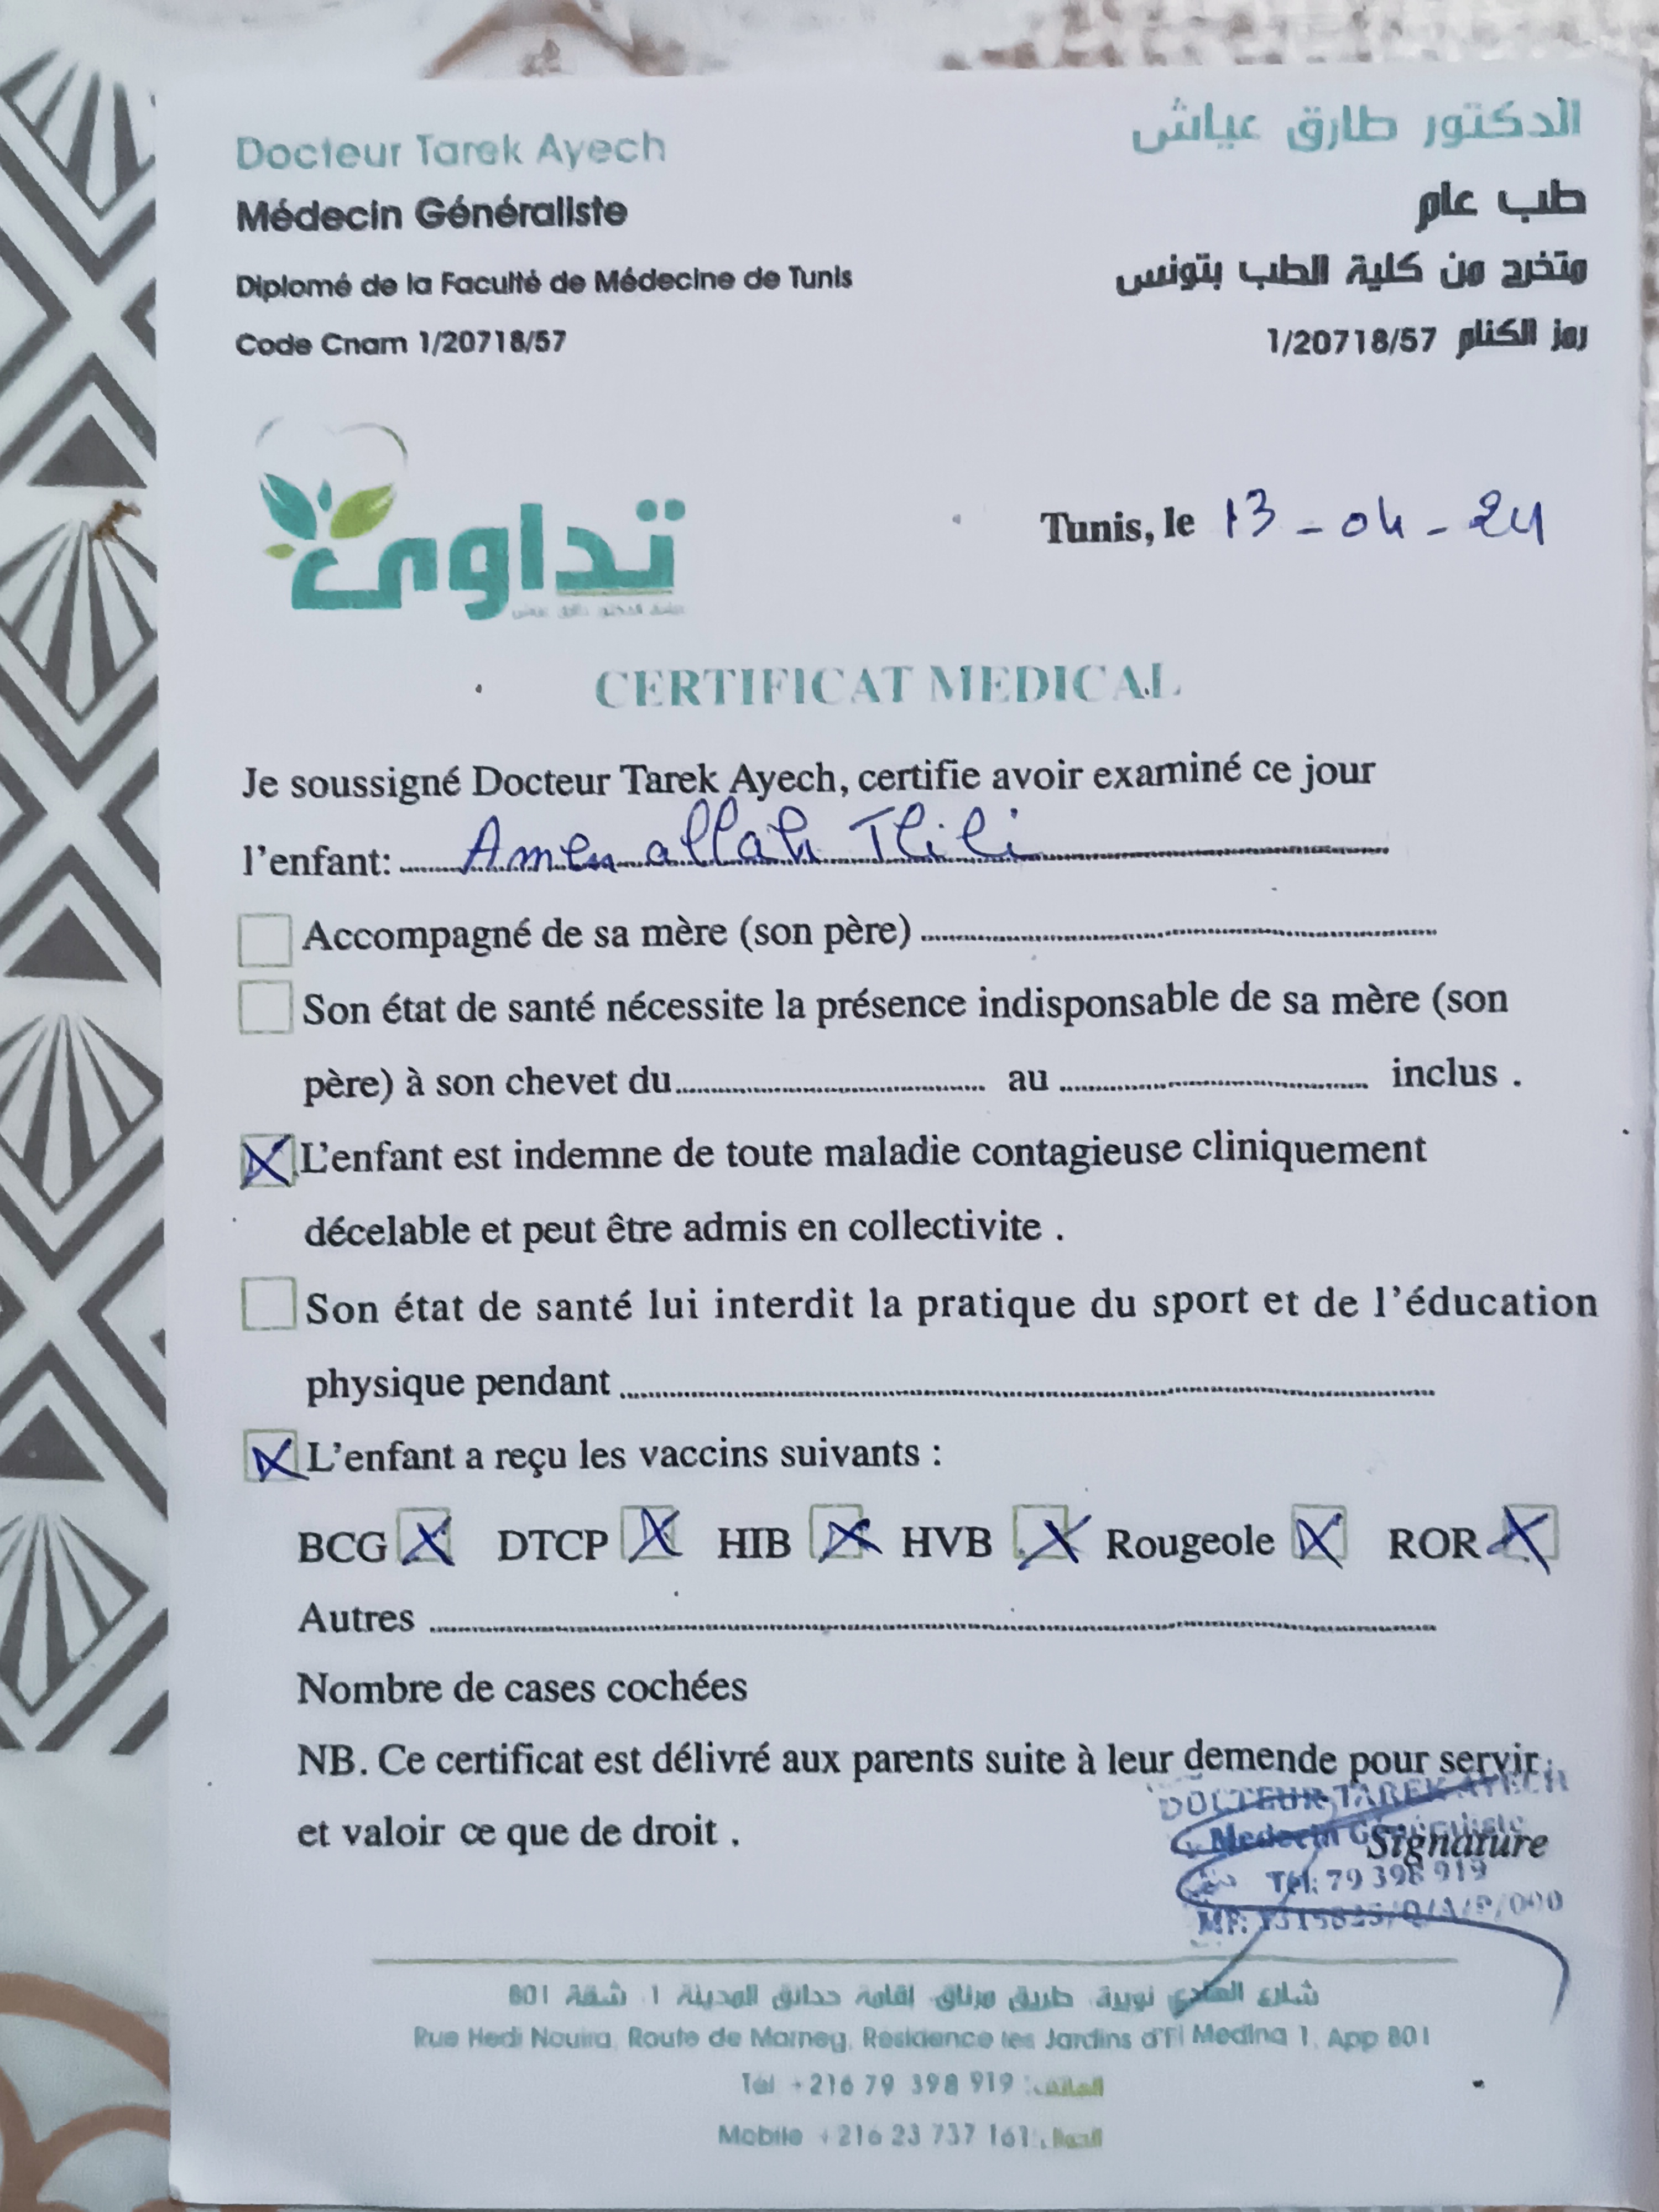 Docteur Tarek Ayech
Médecin Généraliste
Diplomé de la Faculté de Médecine de Tunis
Code Cnam 1/20718/57
الدكتور طارق عياش
طب عام
متخرج من كلية الطب بتونس
رمز الكنام 1/20718/57
تداوى
Tunis, le 13 - 04 - 24
CERTIFICAT MEDICAL
Je soussigné Docteur Tarek Ayech, certifie avoir examiné ce jour
l'enfant: Amen allah Tlili
Accompagné de sa mère (son père)
Son état de santé nécessite la présence indisponsable de sa mère (son
père) à son chevet du au inclus .
L'enfant est indemne de toute maladie contagieuse cliniquement
décelable et peut être admis en collectivite .
Son état de santé lui interdit la pratique du sport et de l'éducation
physique pendant
L'enfant a reçu les vaccins suivants :
BCG DTCP HIB HVB Rougeole ROR
Autres
Nombre de cases cochées
NB. Ce certificat est délivré aux parents suite à leur demende pour servir
et valoir ce que de droit .
Signature
DOCTEUR TAREK AYECH
Medecin Généraliste
Tél: 79 398 919
شارع الهادي نويرة، طريق مرناق، إقامة حدائق المدينة 1، شقة 801
Rue Hedi Nouira, Route de Morneg, Residence les Jardins d'El Medina 1, App 801
Tél +216 79 398 919 :الهاتف
Mobile +216 23 737 161 :الجوال